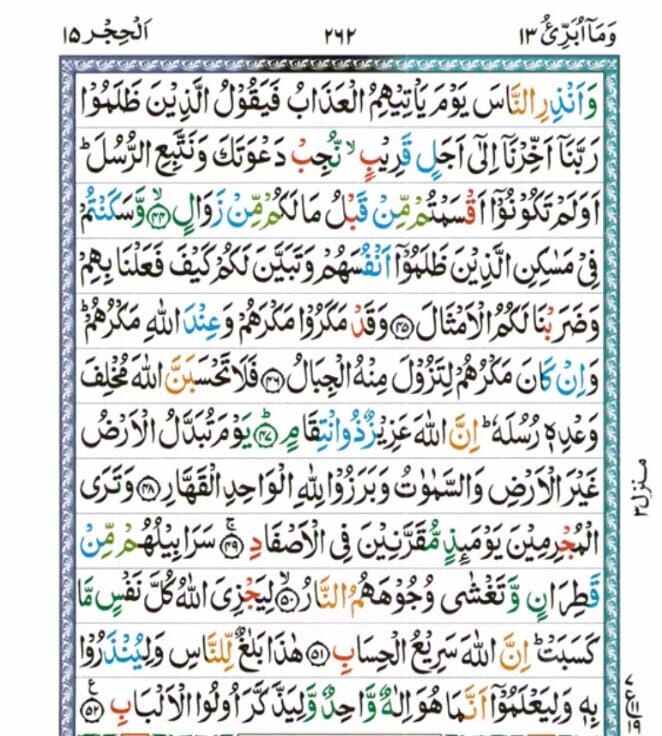 وَمَآ اُبَرِّئُ ١٣ ٢٦٢ اَلْحِجْر ١٥
وَاَنْذِرِ النَّاسَ يَوْمَ يَاْتِيْهِمُ الْعَذَابُ فَيَقُوْلُ الَّذِيْنَ ظَلَمُوْا
رَبَّنَاۤ اَخِّرْنَاۤ اِلٰۤى اَجَلٍ قَرِيْبٍ ۙ نُّجِبْ دَعْوَتَكَ وَنَتَّبِعِ الرُّسُلَ ؕ
اَوَلَمْ تَكُوْنُوْۤا اَقْسَمْتُمْ مِّنْ قَبْلُ مَا لَكُمْ مِّنْ زَوَالٍ ۙ﴿۴۴﴾ وَّسَكَنْتُمْ
فِيْ مَسٰكِنِ الَّذِيْنَ ظَلَمُوْۤا اَنْفُسَهُمْ وَتَبَيَّنَ لَكُمْ كَيْفَ فَعَلْنَا بِهِمْ
وَضَرَبْنَا لَكُمُ الْاَمْثَالَ ﴿۴۵﴾ وَقَدْ مَكَرُوْا مَكْرَهُمْ وَعِنْدَ اللّٰهِ مَكْرُهُمْ ؕ
وَاِنْ كَانَ مَكْرُهُمْ لِتَزُوْلَ مِنْهُ الْجِبَالُ ﴿۴۶﴾ فَلَا تَحْسَبَنَّ اللّٰهَ مُخْلِفَ
وَعْدِهٖ رُسُلَهٗ ؕ اِنَّ اللّٰهَ عَزِيْزٌ ذُوانْتِقَامٍ ؕ﴿۴۷﴾ يَوْمَ تُبَدَّلُ الْاَرْضُ
غَيْرَ الْاَرْضِ وَالسَّمٰوٰتُ وَبَرَزُوْا لِلّٰهِ الْوَاحِدِ الْقَهَّارِ ﴿۴۸﴾ وَتَرَى
الْمُجْرِمِيْنَ يَوْمَىِٕذٍ مُّقَرَّنِيْنَ فِى الْاَصْفَادِ ۚ﴿۴۹﴾ سَرَابِيْلُهُمْ مِّنْ
قَطِرَانٍ وَّتَغْشٰى وُجُوْهَهُمُ النَّارُ ۙ﴿۵۰﴾ لِيَجْزِىَ اللّٰهُ كُلَّ نَفْسٍ مَّا
كَسَبَتْ ؕ اِنَّ اللّٰهَ سَرِيْعُ الْحِسَابِ ﴿۵۱﴾ هٰذَا بَلٰغٌ لِّلنَّاسِ وَلِيُنْذَرُوْا
بِهٖ وَلِيَعْلَمُوْۤا اَنَّمَا هُوَ اِلٰهٌ وَّاحِدٌ وَّلِيَذَّكَّرَ اُولُوا الْاَلْبَابِ ﴿۵۲﴾
منزل ٣
ع
٧
١١
١٩